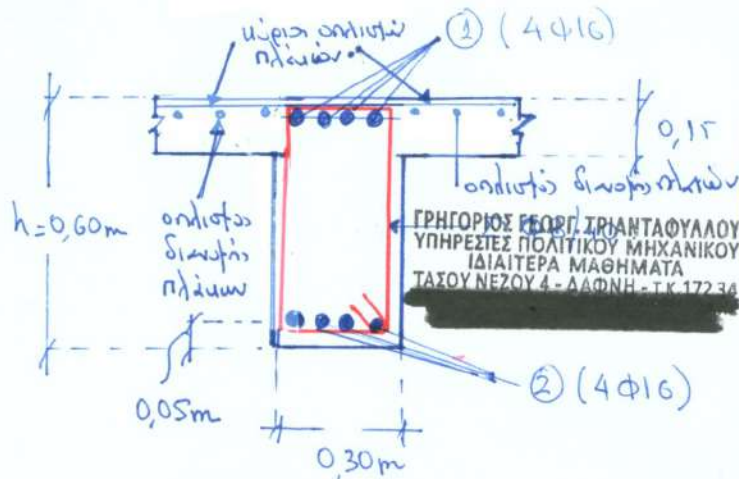 κύριοι οπλισμοί
πλακών
① (4Φ16)
0,15
h=0,60m
οπλισμός
διανομής
πλακών
οπλισμός διανομής πλακών
ΓΡΗΓΟΡΙΟΣ ΓΕΩΡΓ. ΤΡΙΑΝΤΑΦΥΛΛΟΥ
ΥΠΗΡΕΣΙΕΣ ΠΟΛΙΤΙΚΟΥ ΜΗΧΑΝΙΚΟΥ
ΙΔΙΑΙΤΕΡΑ ΜΑΘΗΜΑΤΑ
ΤΑΣΟΥ ΝΕΖΟΥ 4 - ΔΑΦΝΗ - Τ.Κ. 172 34
0,05m
② (4Φ16)
0,30m